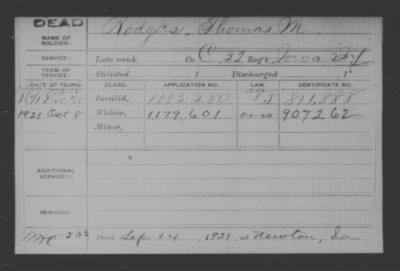 DEAD
NAME OF SOLDIER: Rodgers, Thomas M.
SERVICE: Late rank, Co. C, 22 Reg't Iowa Inf
TERM OF SERVICE: Enlisted , 1 Discharged , 1
DATE OF FILING. CLASS. APPLICATION NO. LAW. CERTIFICATE NO.
Invalid, 1082280 811,888
1921 Oct 8 Widow, 1,179,601 5-1-20 907262
Minor,
ADDITIONAL SERVICES:
REMARKS:
Died Sep 24, 1921, at Newton, Ia